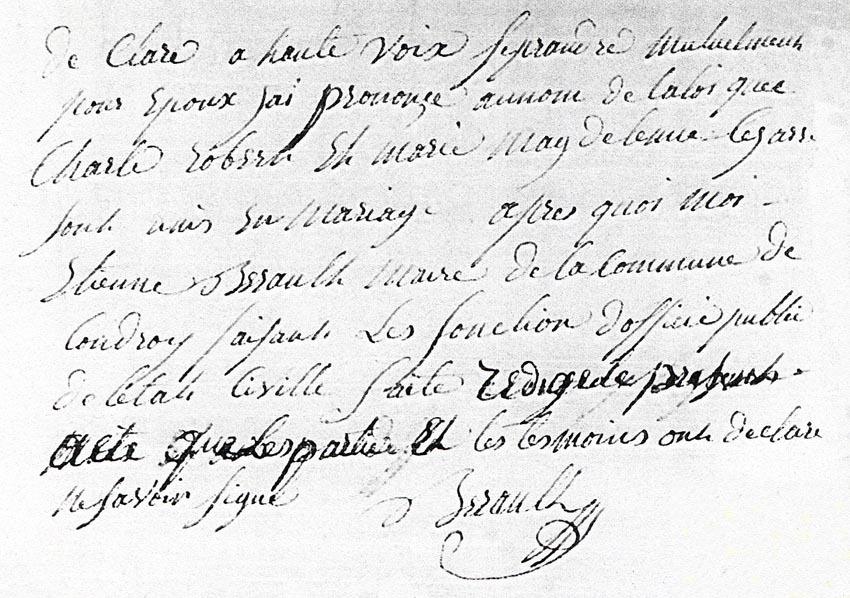 de Clare a haute voix seprandre mutuelment
pour Epoux jai prononçe aunom de laloi quee
Charle robert Et marie magdelenne legarr
sont unis En mariage apres quoi moi -
Etienne maire de la Commune de
Coudroy faisant Les fonction dofficié public
de letat Civille faite redige le present
acte que Les partie Et les tesmoins ont declare
ne savoir signé